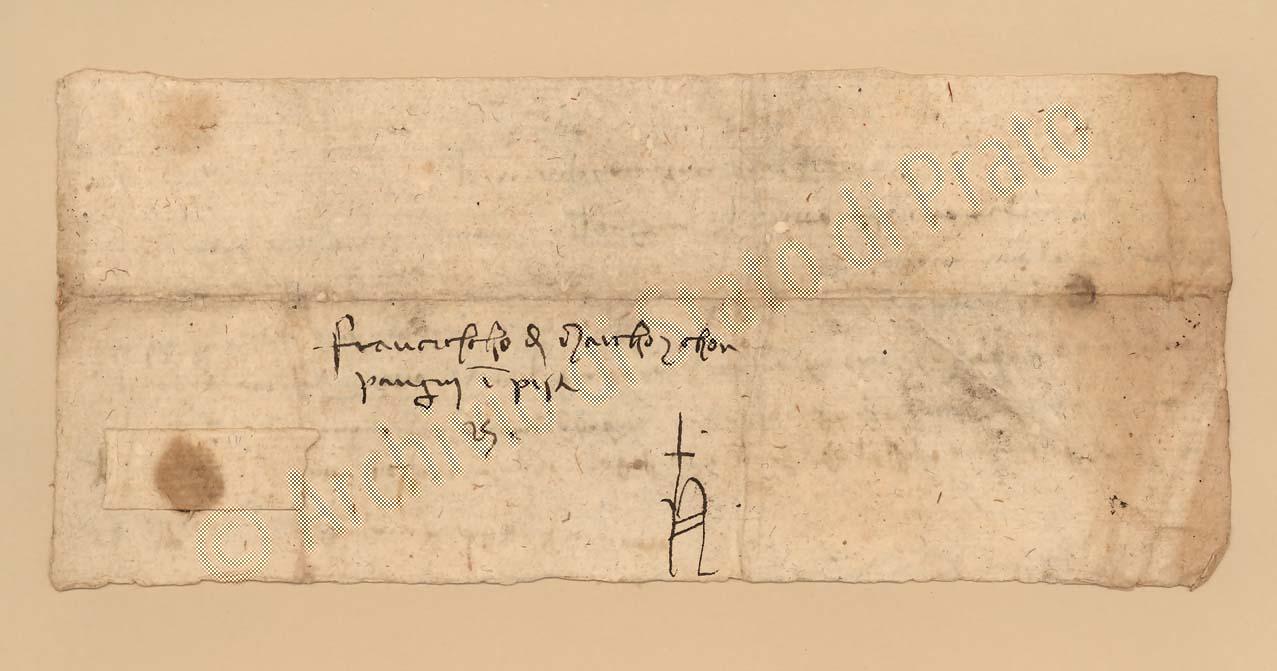 Franciescho d Marcho e chon
pangni i pisa
© Archivio di Stato di Prato